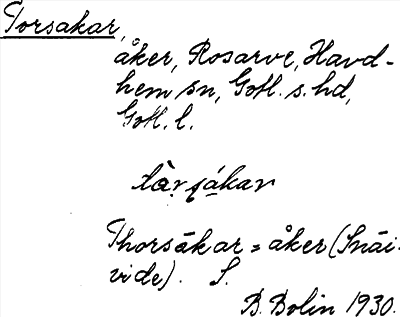 Torsakar,
åker, Rosarve, Havd-
hem sn, Gotl. s. hd,
Gotl. l.
Thorsåkar = åker (Snäi-
vide). S.
B. Bolin 1930.